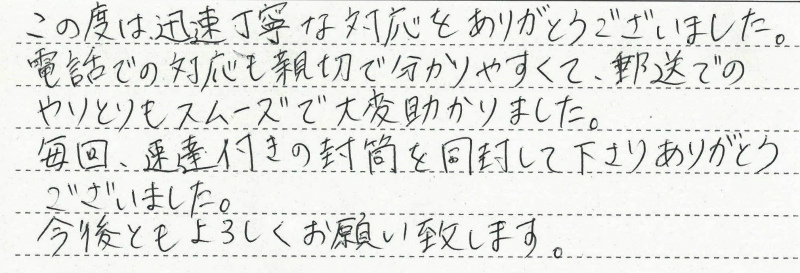 この度は迅速丁寧な対応をありがとうございました。
電話での対応も親切で分かりやすくて、郵送での
やりとりもスムーズで大変助かりました。
毎回、速達付きの封筒を同封して下さりありがとう
ございました。
今後ともよろしくお願い致します。